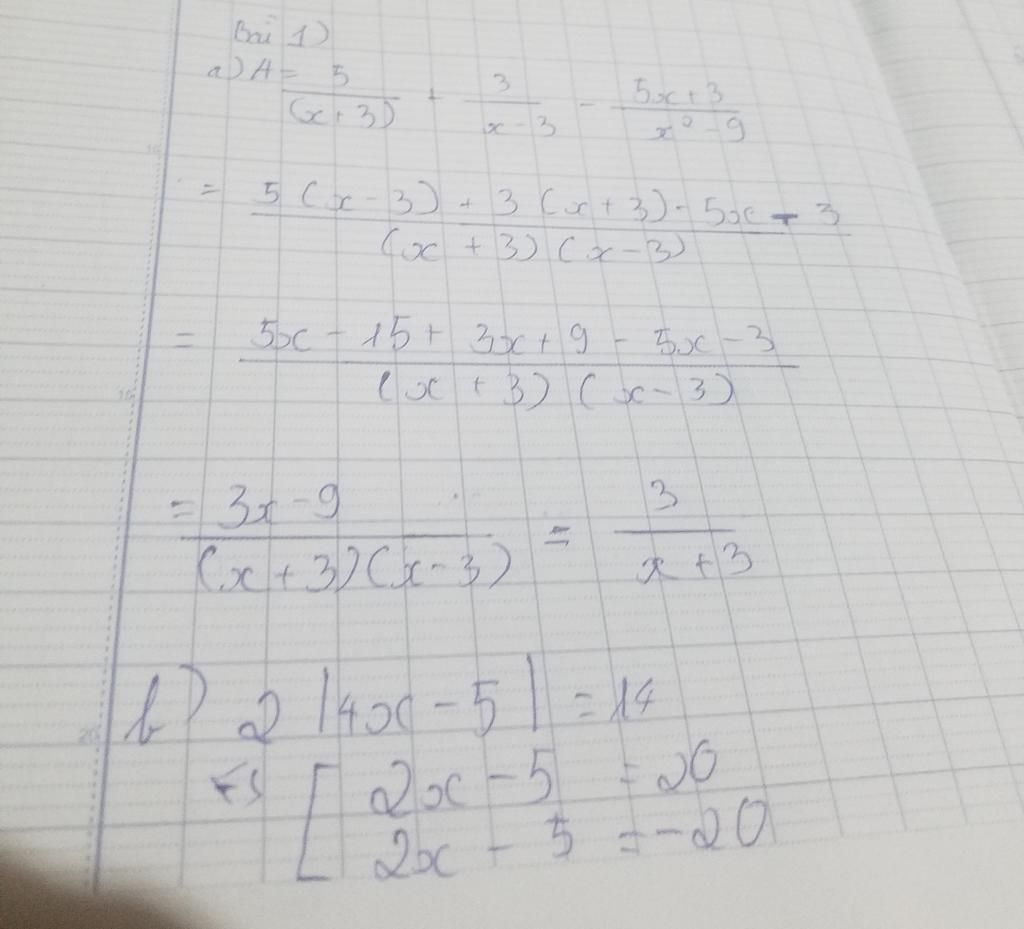 Bài 1)
a) A = 5/(x+3) + 3/x-3 - 5x+3/x²-9
= 5(x-3) + 3(x+3) - 5x - 3/(x+3)(x-3)
= 5x - 15 + 3x + 9 - 5x - 3/(x+3)(x-3)
= 3x-9/(x+3)(x-3) = 3/x+3
b) 2|4x-5| = 14
[ 2x - 5 = 20
2x - 5 = -20